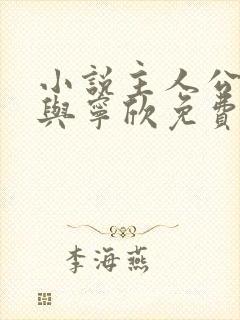 小說主人公
與寧欣免費
李海燕